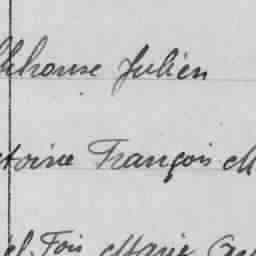 Alphonse Julien
toine François M
el. Fois Marie